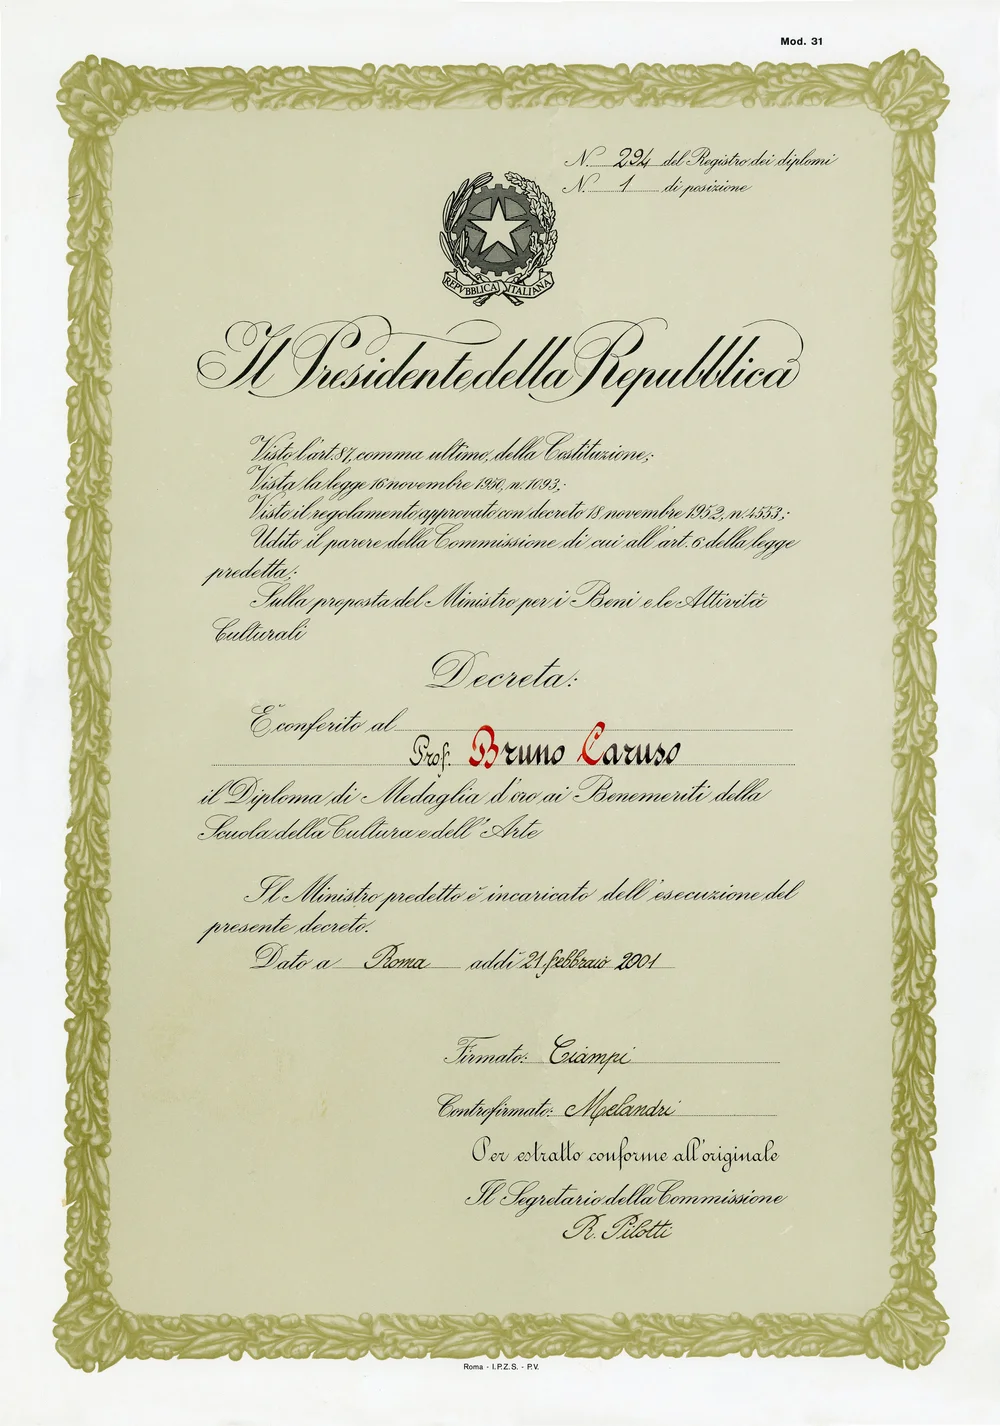 Mod. 31
N. 294 del Registro dei diplomi
N. 1 di posizione
REPVBBLICA ITALIANA
Il Presidente della Repubblica
Visto l'art. 87, comma ultimo, della Costituzione;
Vista la legge 16 novembre 1950, n. 1093;
Visto il regolamento approvato con decreto 18 novembre 1952, n. 4553;
Udito il parere della Commissione di cui all'art. 6 della legge
predetta;
Sulla proposta del Ministro per i Beni e le Attività
Culturali
Decreta:
E' conferito al
Prof. Bruno Caruso
il Diploma di Medaglia d'oro ai Benemeriti della
Scuola della Cultura e dell'Arte
Il Ministro predetto è incaricato dell'esecuzione del
presente decreto.
Dato a Roma addì 21 febbraio 2001
Firmato: Ciampi
Controfirmato: Melandri
Per estratto conforme all'originale
Il Segretario della Commissione
R. Pilotti
Roma - I.P.Z.S. - P.V.